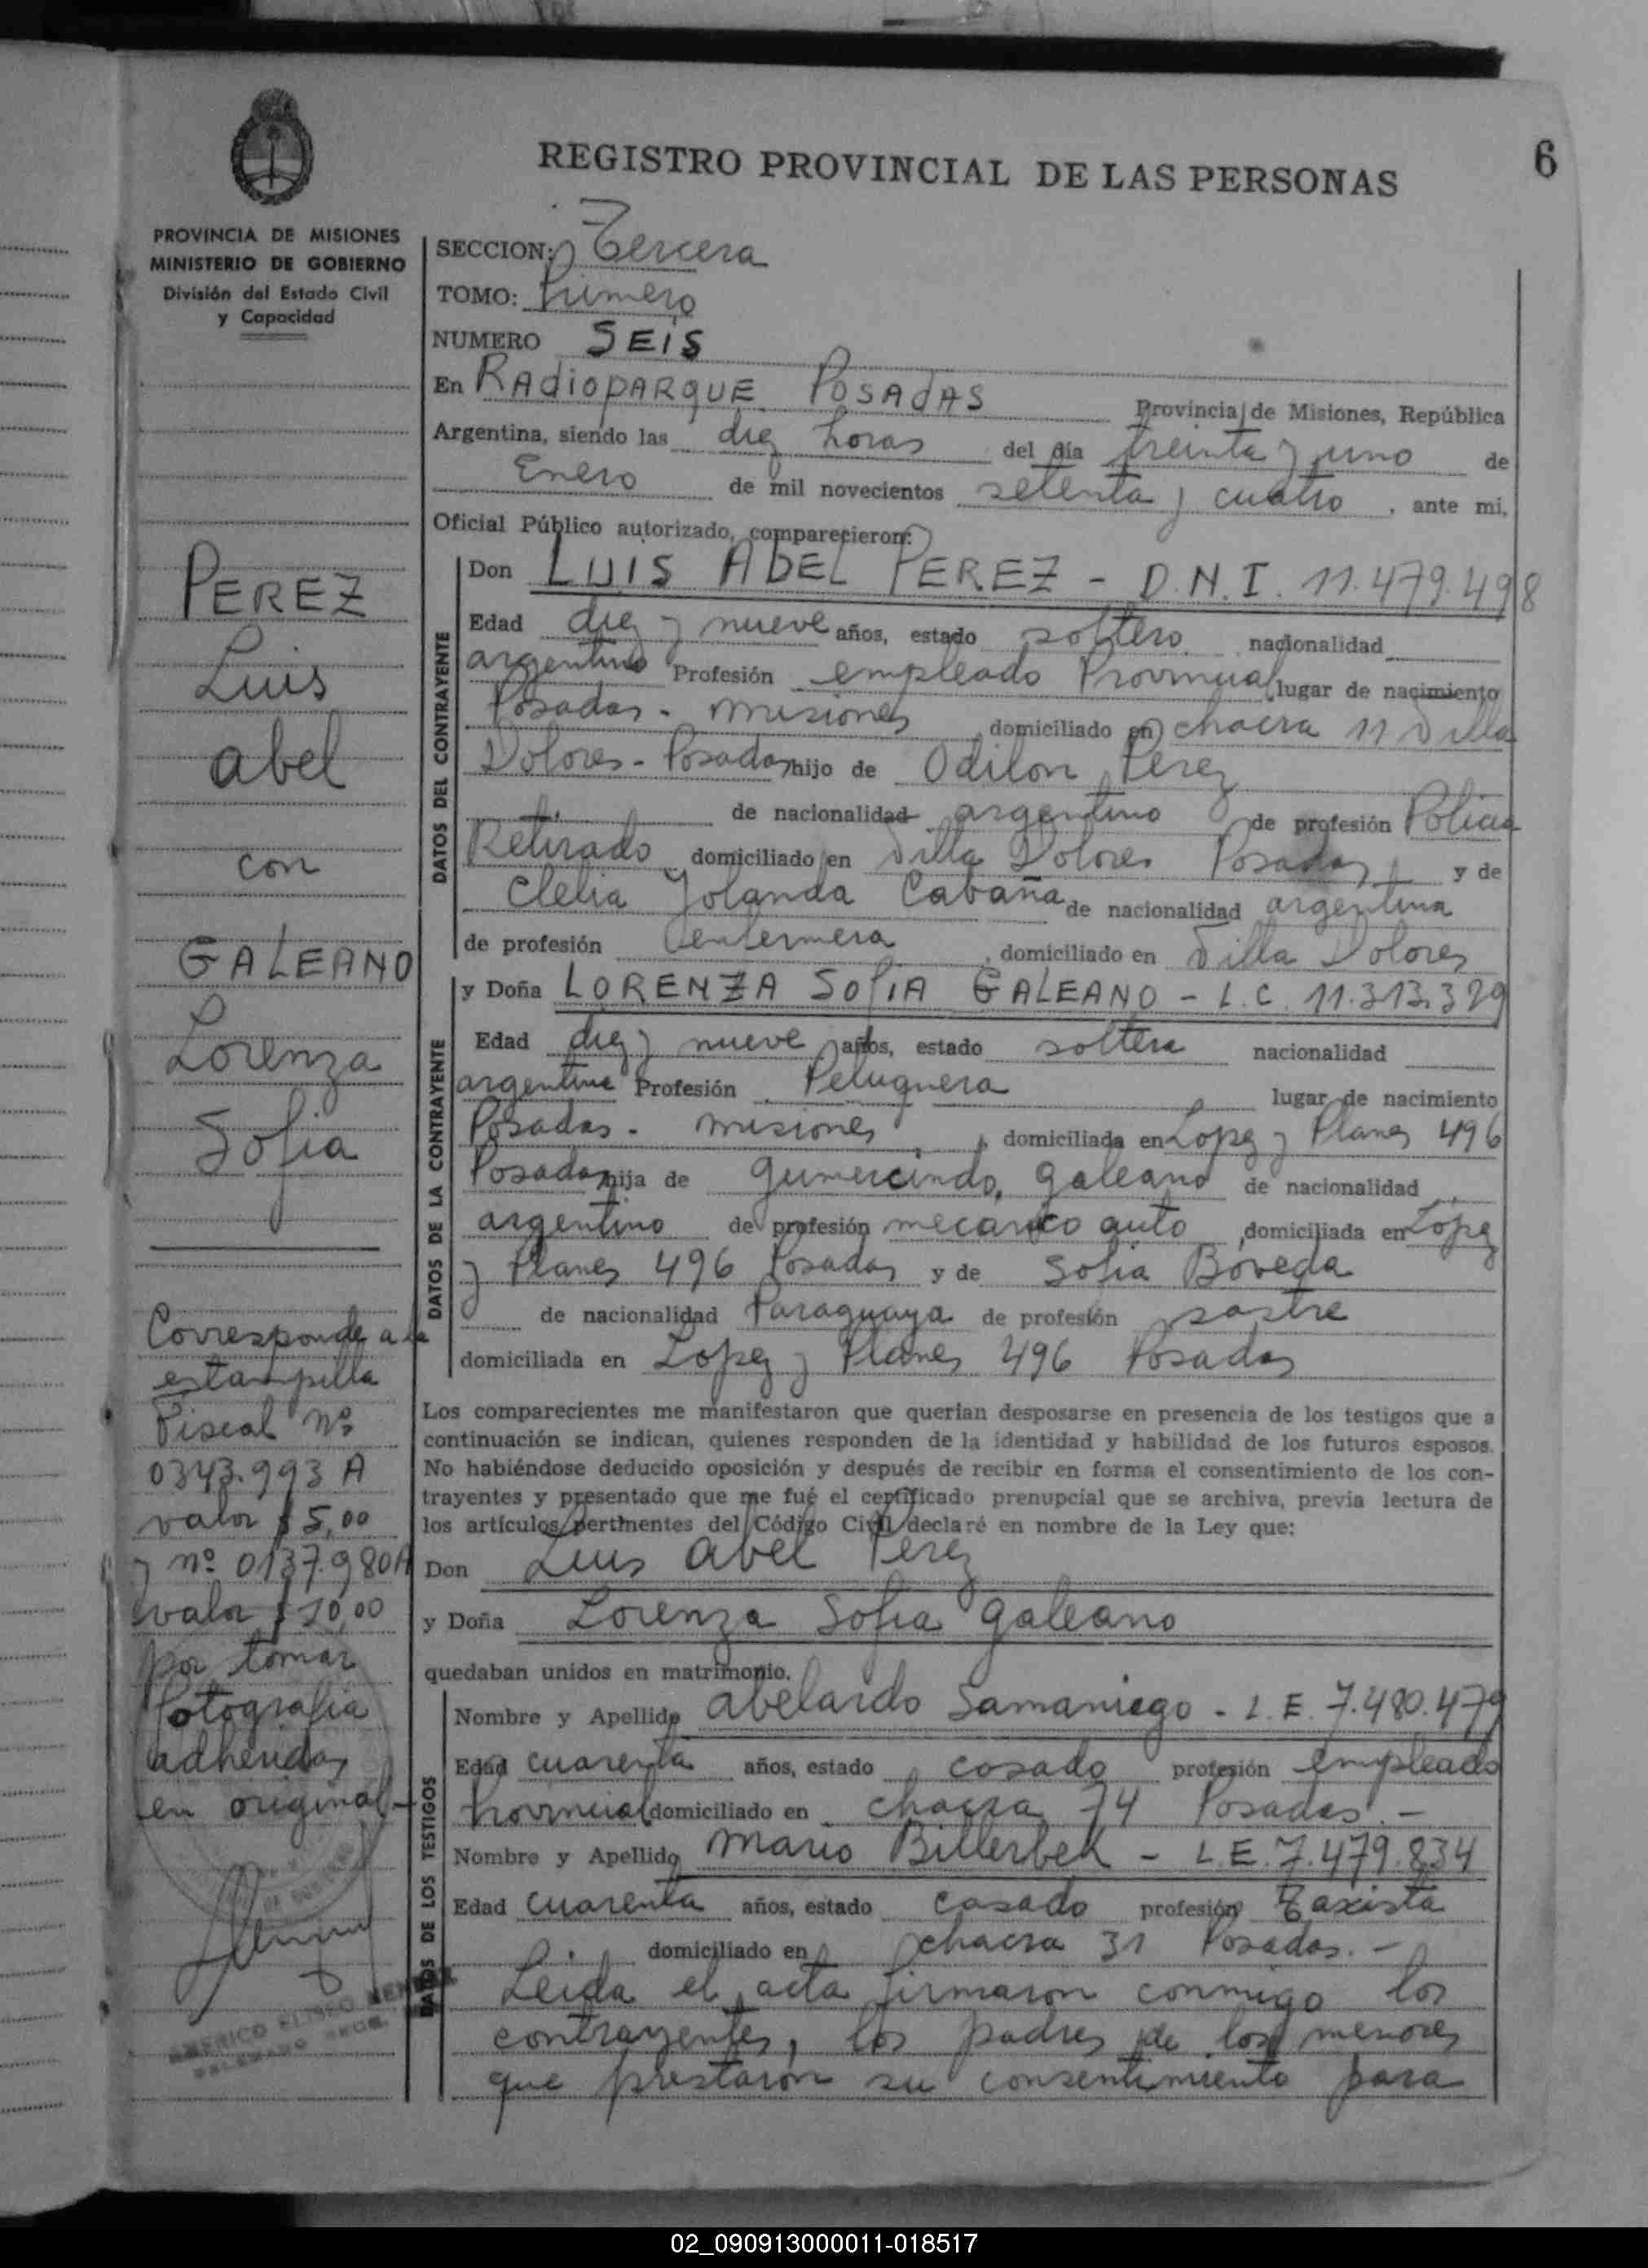 REGISTRO PROVINCIAL DE LAS PERSONAS
6
PROVINCIA DE MISIONES
MINISTERIO DE GOBIERNO
División del Estado Civil
y Capacidad
SECCION: Tercera
TOMO: Primero
NUMERO SEIS
En RAdioPARQUE POSAdAS Provincia de Misiones, República
Argentina, siendo las diez horas del día treinta y uno de
Enero de mil novecientos setenta y cuatro, ante mi,
Oficial Público autorizado, comparecieron:
PEREZ
Luis
abel
con
GALEANO
Lorenza
Sofia
DATOS DEL CONTRAYENTE
Don LUIS ABEL PEREZ - D.N.I. 11.479.498
Edad diez y nueve años, estado soltero nacionalidad
argentino Profesión empleado Provincial lugar de nacimiento
Posadas - Misiones domiciliado en chacra 11 Villa
Dolores - Posadas hijo de Odilon Perez
de nacionalidad argentino de profesión Policia
Retirado domiciliado en Villa Dolores Posadas y de
Clelia Yolanda Cabaña de nacionalidad argentina
de profesión enfermera, domiciliado en Villa Dolores
DATOS DE LA CONTRAYENTE
y Doña LORENZA SOFIA GALEANO - L.C. 11.313.329
Edad diez y nueve años, estado soltera nacionalidad
argentina Profesión Peluquera lugar de nacimiento
Posadas - Misiones, domiciliada en Lopez y Planes 496
Posadas hija de Gumercindo Galeano de nacionalidad
argentino de profesión mecanico auto, domiciliada en Lopez
y Planes 496 Posadas y de Sofia Boveda
de nacionalidad Paraguaya de profesión sastre
domiciliada en Lopez y Planes 496 Posadas
Corresponde a la
estampilla
Fiscal Nº
0343.993 A
valor $ 5,00
y nº 0137.980A
valor $ 10,00
por tomar
fotografia
adheridas
en original-
Los comparecientes me manifestaron que querían desposarse en presencia de los testigos que a
continuación se indican, quienes responden de la identidad y habilidad de los futuros esposos.
No habiéndose deducido oposición y después de recibir en forma el consentimiento de los con-
trayentes y presentado que me fué el certificado prenupcial que se archiva, previa lectura de
los artículos pertinentes del Código Civil declaré en nombre de la Ley que:
Don Luis Abel Perez
y Doña Lorenza Sofia Galeano
quedaban unidos en matrimonio.
DATOS DE LOS TESTIGOS
Nombre y Apellido Abelardo Samaniego - L.E. 7.480.479
Edad cuarenta años, estado casado profesión empleado
Provincial domiciliado en chacra 74 Posadas.-
Nombre y Apellido Mario Billerbek - L.E. 7.479.834
Edad cuarenta años, estado casado profesión Taxista
domiciliado en chacra 31 Posadas.-
Leida el acta firmaron conmigo los
contrayentes, los padres de los menores
que prestaron su consentimiento para
AMERICO ELISEO
02_090913000011-018517